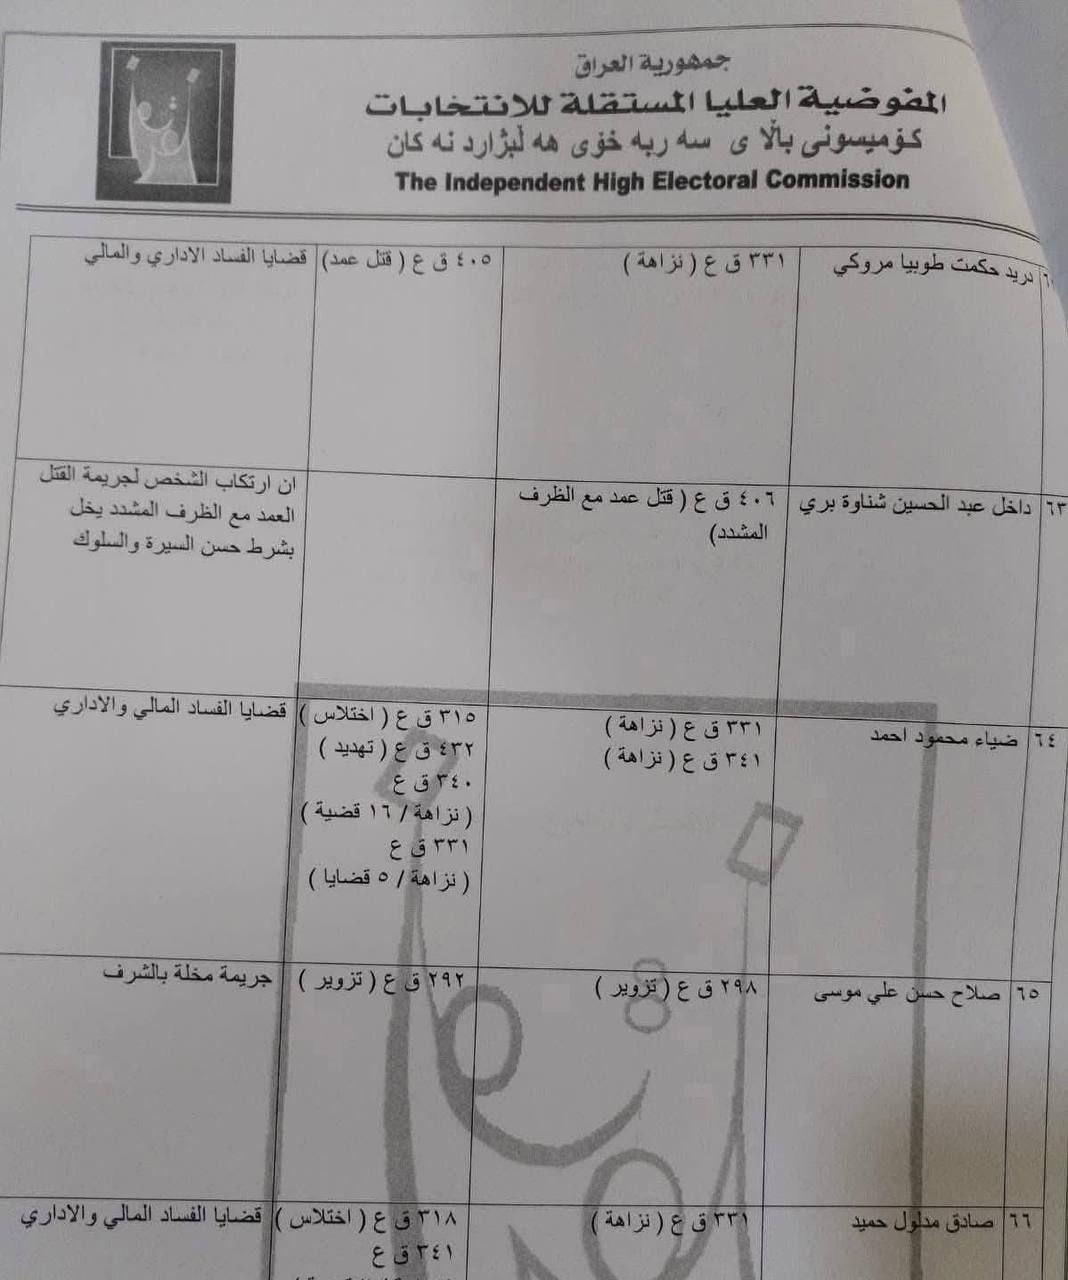 جمهورية العراق
المفوضية العليا المستقلة للانتخابات
كۆميسونى بالآ ى سه ربه خۆى هه لبژارد نه كان
The Independent High Electoral Commission
دريد حكمت طوبيا مروكي
٣٣١ ق ع ( نزاهة )
٤٠٥ ق ع ( قتل عمد)
قضايا الفساد الاداري والمالي
٦٣
داخل عبد الحسين شناوة بري
٤٠٦ ق ع ( قتل عمد مع الظرف
المشدد)
ان ارتكاب الشخص لجريمة القتل
العمد مع الظرف المشدد يخل
بشرط حسن السيرة والسلوك
٦٤
ضياء محمود احمد
٣٣١ ق ع ( نزاهة )
٣٤١ ق ع ( نزاهة )
٣١٥ ق ع ( اختلاس )
٤٣٢ ق ع ( تهديد )
٣٤٠ ق ع
( نزاهة / ١٦ قضية )
٣٣١ ق ع
( نزاهة / ٥ قضايا )
قضايا الفساد المالي والاداري
٦٥
صلاح حسن علي موسى
٢٩٨ ق ع ( تزوير )
٢٩٢ ق ع ( تزوير )
جريمة مخلة بالشرف
٦٦
صادق مدلول حميد
٣٣١ ق ع ( نزاهة )
٣١٨ ق ع ( اختلاس )
٣٤١ ق ع
قضايا الفساد المالي والاداري